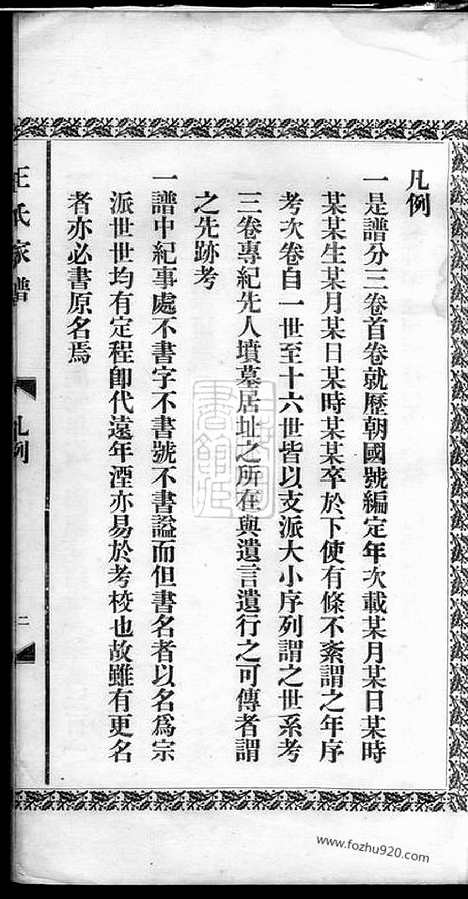 凡例
一是譜分三卷首卷就歷朝國號編定年次載某月某日某時
某某生某月某日某時某某卒於下使有條不紊謂之年序
考次卷自一世至十六世皆以支派大小序列謂之世系考
三卷專紀先人墳墓居址之所在與遺言遺行之可傳者謂
之先跡考
一譜中紀事處不書字不書號不書諡而但書名者以名爲宗
派世世均有定程卽代遠年湮亦易於考校也故雖有更名
者亦必書原名焉
王氏家譜
凡例
二
www.fozhu920.com